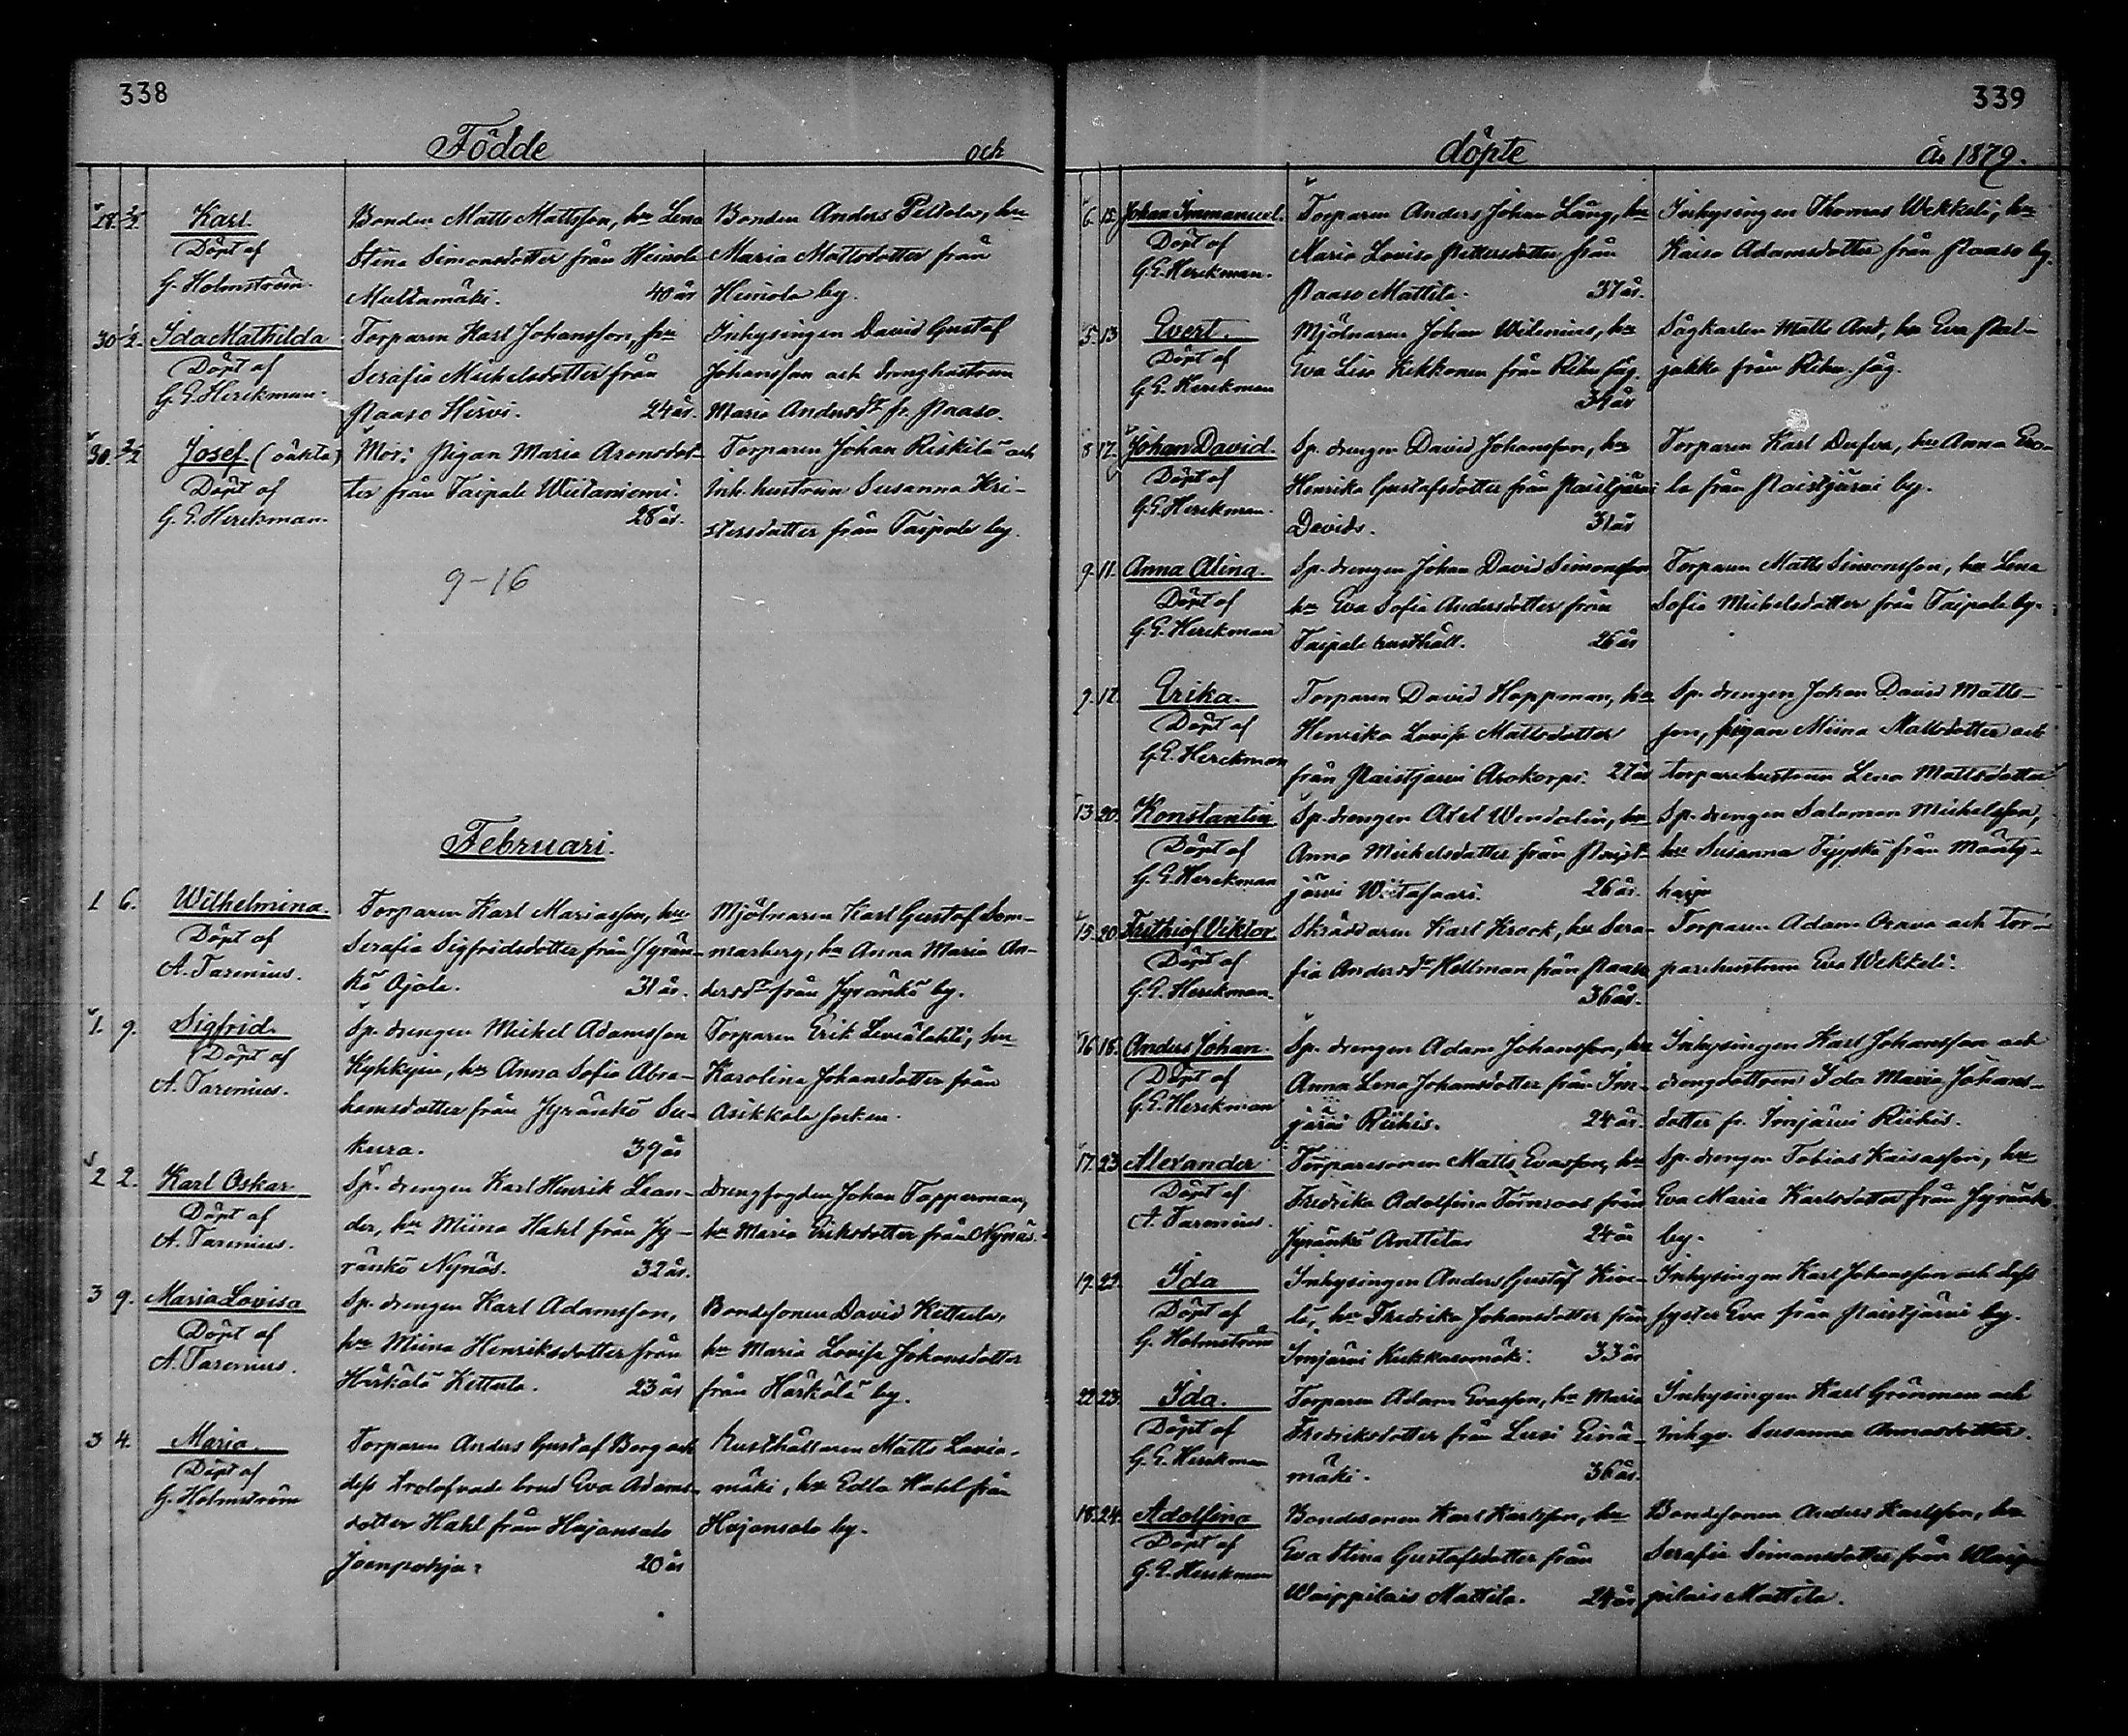 338
Födde
och
28. 2/2. Karl.
Döpt af
G. Holmström.
Bonden Matts Mattsson, hu Lena
Stina Simonsdotter från Heinola
Multamäki. 40 år
Bonden Anders Peltola, hu
Maria Mattsdotter från
Heinola by.
30 1/2. Ida Mathilda
Döpt af
G. E. Herckman.
Torparen Karl Johansson, hu
Serafia Michelsdotter från
Paaso Hirvi. 24 år.
Inhysingen David Gustaf
Johansson och drenghustrun
Maria Andersdr fr. Paaso.
30. 2/2 Josef (oäkta)
Döpt af
G. E. Herckman.
Mor: Pigan Maria Aronsdot-
ter från Taipale Wiitaniemi.
28 år.
Torparen Johan Riskilä och
inh. hustrun Susanna Kri-
stersdotter från Taipale by.
9-16
Februari.
1 6. Wilhelmina.
Döpt af
A. Tarenius.
Torparen Karl Mariasson, hu
Serafia Sigfridsdotter från Jyrän-
kö Ojala. 31 år.
Mjölnaren Karl Gustaf Som-
marberg, hu Anna Maria An-
dersdr från Jyränkö by.
1. 9. Sigfrid.
Döpt af
A. Tarenius.
Sp. drengen Michel Adamsson
Kyhkyin, hu Anna Sofia Abra-
hamsdotter från Jyränkö Seu-
kura. 39 år
Torparen Erik Leviälahti, hu
Karolina Johansdotter från
Asikkala socken.
2 2. Karl Oskar
Döpt af
A. Tarenius.
Sp. drengen Karl Henrik Lean-
der, hu Miina Hahl från Jy-
ränkö Nynäs. 32 år.
Drengfogden Johan Topperman,
hu Maria Eriksdotter från Nynäs.
3 9. Maria Lovisa
Döpt af
A. Tarenius.
Sp. drengen Karl Adamsson,
hu Miina Henriksdotter från
Härkälä Kettula. 23 år
Bondesonen David Kettula,
hu Maria Lovisa Johansdotter
från Härkälä by.
3 4. Maria.
Döpt af
G. Holmström
Torparen Anders Gustaf Borg och
dess trolofvade brud Eva Adams-
dotter Hahl från Hujansalo
Joenpohja. 20 år
Rusthållaren Matts Lavia-
mäki, hu Edla Hahl från
Hujansalo by.
339
döpte
år 1879.
6. 15. Johan Immanuel.
Döpt af
G. E. Herckman.
Torparen Anders Johan Lång, hu
Maria Lovisa Pettersdotter från
Paaso Mattila. 37 år.
Inhysingen Thomas Wekkeli, hu
Kaisa Adamsdotter från Paaso by.
5. 13 Evert.
Döpt af
G. E. Herckman
Mjölnaren Johan Wilenius, hu
Eva Lisa Kekkonen från Rihu såg.
39 år
Sågkarlen Matts Ant, hu Eva Pal-
jakka från Rihu såg.
8 12. Johan David.
Döpt af
G. E. Herckman.
Sp. drengen David Johansson, hu
Henrika Gustafsdotter från Paistjärvi
Davids. 31 år
Torparen Karl Dufva, hu Anna Ero-
la från Paistjärvi by.
9. 11. Anna Alina.
Döpt af
G. E. Herckman
Sp. drengen Johan David Simonsson
hu Eva Sofia Andersdotter från
Taipale rusthåll. 26 år
Torparen Matts Simonsson, hu Lena
Sofia Michelsdotter från Taipale by.
9. 12. Erika.
Döpt af
G. E. Herckman
Torparen David Hoppman, hu
Henrika Lovisa Mattsdotter
från Paistjärvi Arokorpi. 27 år
Sp. drengen Johan David Matts-
son, pigan Miina Mattsdotter och
torparehustrun Lena Mattsdotter
13 20. Konstantin
Döpt af
G. E. Herckman
Sp. drengen Axel Wendelin, hu
Anna Michelsdotter från Paist-
järvi Wiitasaari. 26 år.
Sp. drengen Salomon Michelsson,
hu Susanna Typpkä från Mänty-
harju
15. 20. Frithiof Viktor
Döpt af
G. E. Herckman.
Skräddaren Karl Krook, hu Sera-
fia Andersdr Hellman från Paaso
36 år.
Torparen Adam Orava och tor-
parehustrun Eva Wekkeli.
16 18. Anders Johan.
Döpt af
G. E. Herckman
Sp. drengen Adam Johansson, hu
Anna Lena Johansdotter från Im-
järvi Riihis. 24 år.
Inhysingen Karl Johansson och
drengdottren Ida Maria Johans-
dotter fr. Imjärvi Riihis.
17. 23 Alexander
Döpt af
A. Tarenius.
Torparesonen Matts Evasson, hu
Fredrika Adolfina Törnroos från
Jyränkö Anttila 24 år
Sp. drengen Tobias Kaisasson, hu
Eva Maria Karlsdotter från Jyränkö
by.
19. 22. Ida
Döpt af
G. Holmström
Inhysingen Anders Gustaf Kive-
lä, hu Fredrika Johansdotter från
Imjärvi Kukkasomäki. 33 år
Inhysingen Karl Johansson och dess
syster Eva från Paistjärvi by.
22 23. Ida.
Döpt af
G. E. Herckman
Torparen Adam Evasson, hu Maria
Fredriksdotter från Lusi Einä-
mäki. 36 år.
Inhysingen Karl Grönman och
inhys. Susanna Annasdotter.
18. 24. Adolfina
Döpt af
G. E. Herckman
Bondesonen Karl Karlsson, hu
Eva Stina Gustafsdotter från
Waippilais Mattila. 24 år
Bondesonen Anders Karlsson, hu
Serafia Simonsdotter från Waip-
pilais Mattila.